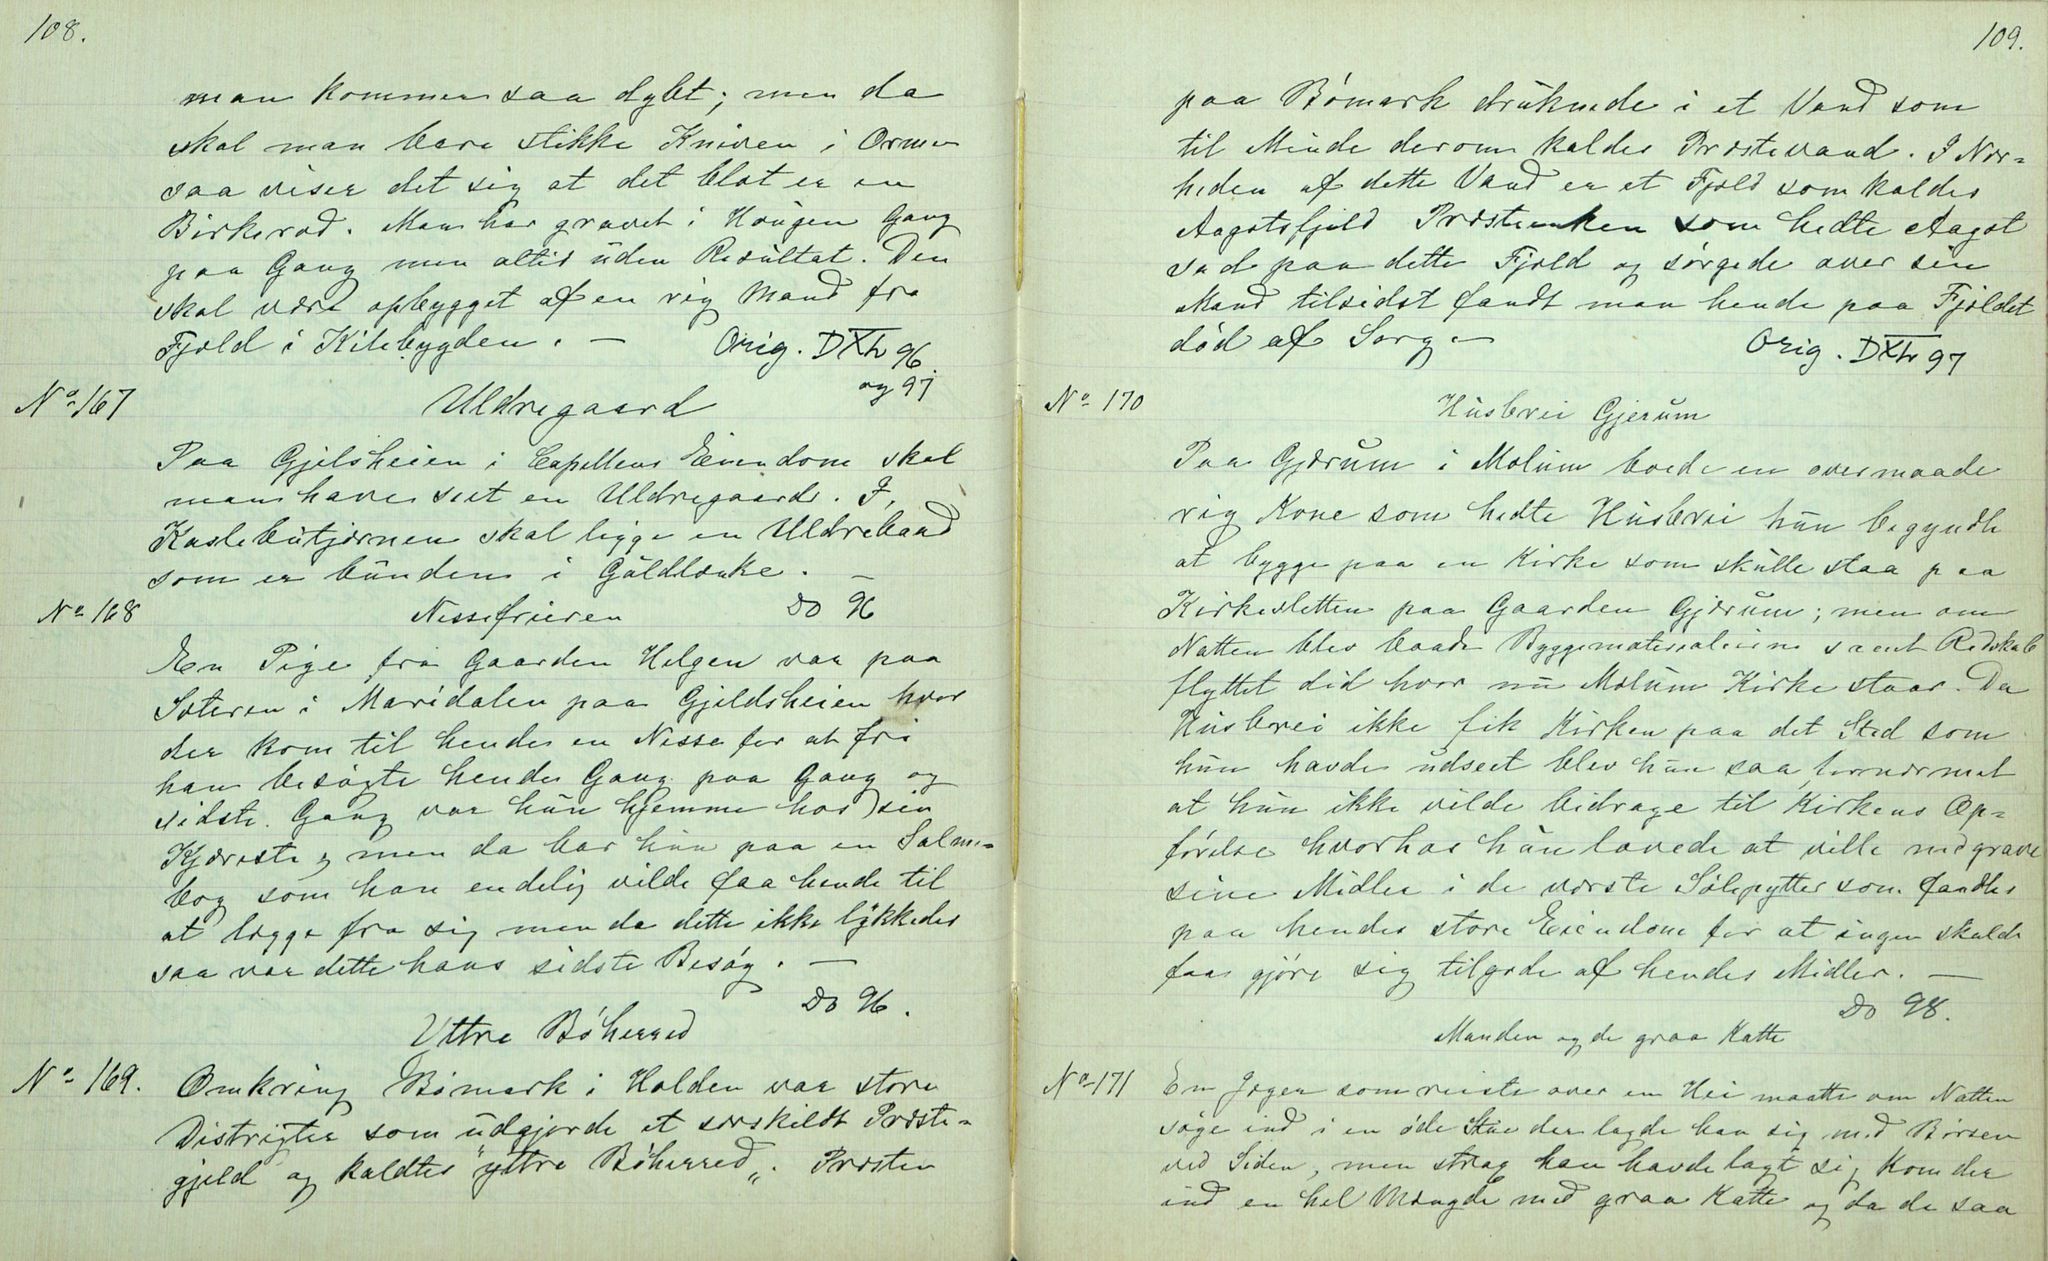 108.
man kommer saa dybt; men da
skal man bare stikke Kniven i Ormen
saa viser det sig at det blot er en
Birkerod. Man har gravet i Haugen Gang
paa Gang men altid uden Resultat. Den
skal være opbygget af en rig Mand fra
Fjæld i Kilebygden. —
Orig. DXLV 96.
og 97
No 167
Uldregaard
Paa Gjelsheien i Capellens Eiendom skal
man have seet en Uldregaard. I
Kaslebutjærnen skal ligge en Uldrebaad
som er bunden i Guldlænke. —
No 168
Nissefrieren
Do 96
En Pige fra Gaarden Helgen var paa
Sæteren i Maridalen paa Gjeldsheien hvor
der kom til hende en Nisse for at fri
han besøgte hende Gang paa Gang og
sidste Gang var hun hjemme hos sin
Kjæreste, men da bar hun paa en Salme-
bog som han endelig vilde faa hende til
at lægge fra sig men da dette ikke lykkedes
saa var dette hans sidste Besøg. —
Do 96.
Yttre Bøherred
No 169.
Omkring Bømark i Holden var store
Distrigter som udgjorde et særskildt Præste-
gjeld og kaldtes "yttre Bøherred". Præsten
109.
paa Bømark druknede i et Vand som
til Minde derom kaldes Præstevand. I Nær-
heden af dette Vand er et Fjeld som kaldes
Aagotsfjeld Præsteenken som hedte Aagot
sad paa dette Fjeld og sørgede over sin
Mand tilsidst fandt man hende paa Fjeldet
død af Sorg. —
Orig. DXLV 97
No 170
Husbrei Gjerum
Paa Gjærum i Mælum boede en overmaade
rig Kone som hedte Husbrei hun begyndte
at bygge paa en Kirke som skulle staa paa
Kirkesletten paa Gaarden Gjærum; men om
Natten blev baade Byggematerialierne samt Redskab
flyttet did hvor nu Mælum Kirke staar. Da
Husbrei ikke fik Kirken paa det Sted som
hun havde udseet blev hun saa fornærmet
at hun ikke vilde bidrage til Kirkens Op-
førelse hvorhos hun lovede at ville nedgrave
sine Midler i de værste Sølepytter som fandtes
paa hendes store Eiendom for at ingen skulde
faa gjøre sig tilgode af hendes Midler. —
Do 98.
Manden og de graa Katte
No 171
En Jæger som reiste over en Hei maatte om Natten
søge ind i en øde Stue der lagde han sig med Børsen
ved Siden, men strax han havde lagt sig kom der
ind en hel Mængde med graa Katte og da de saa